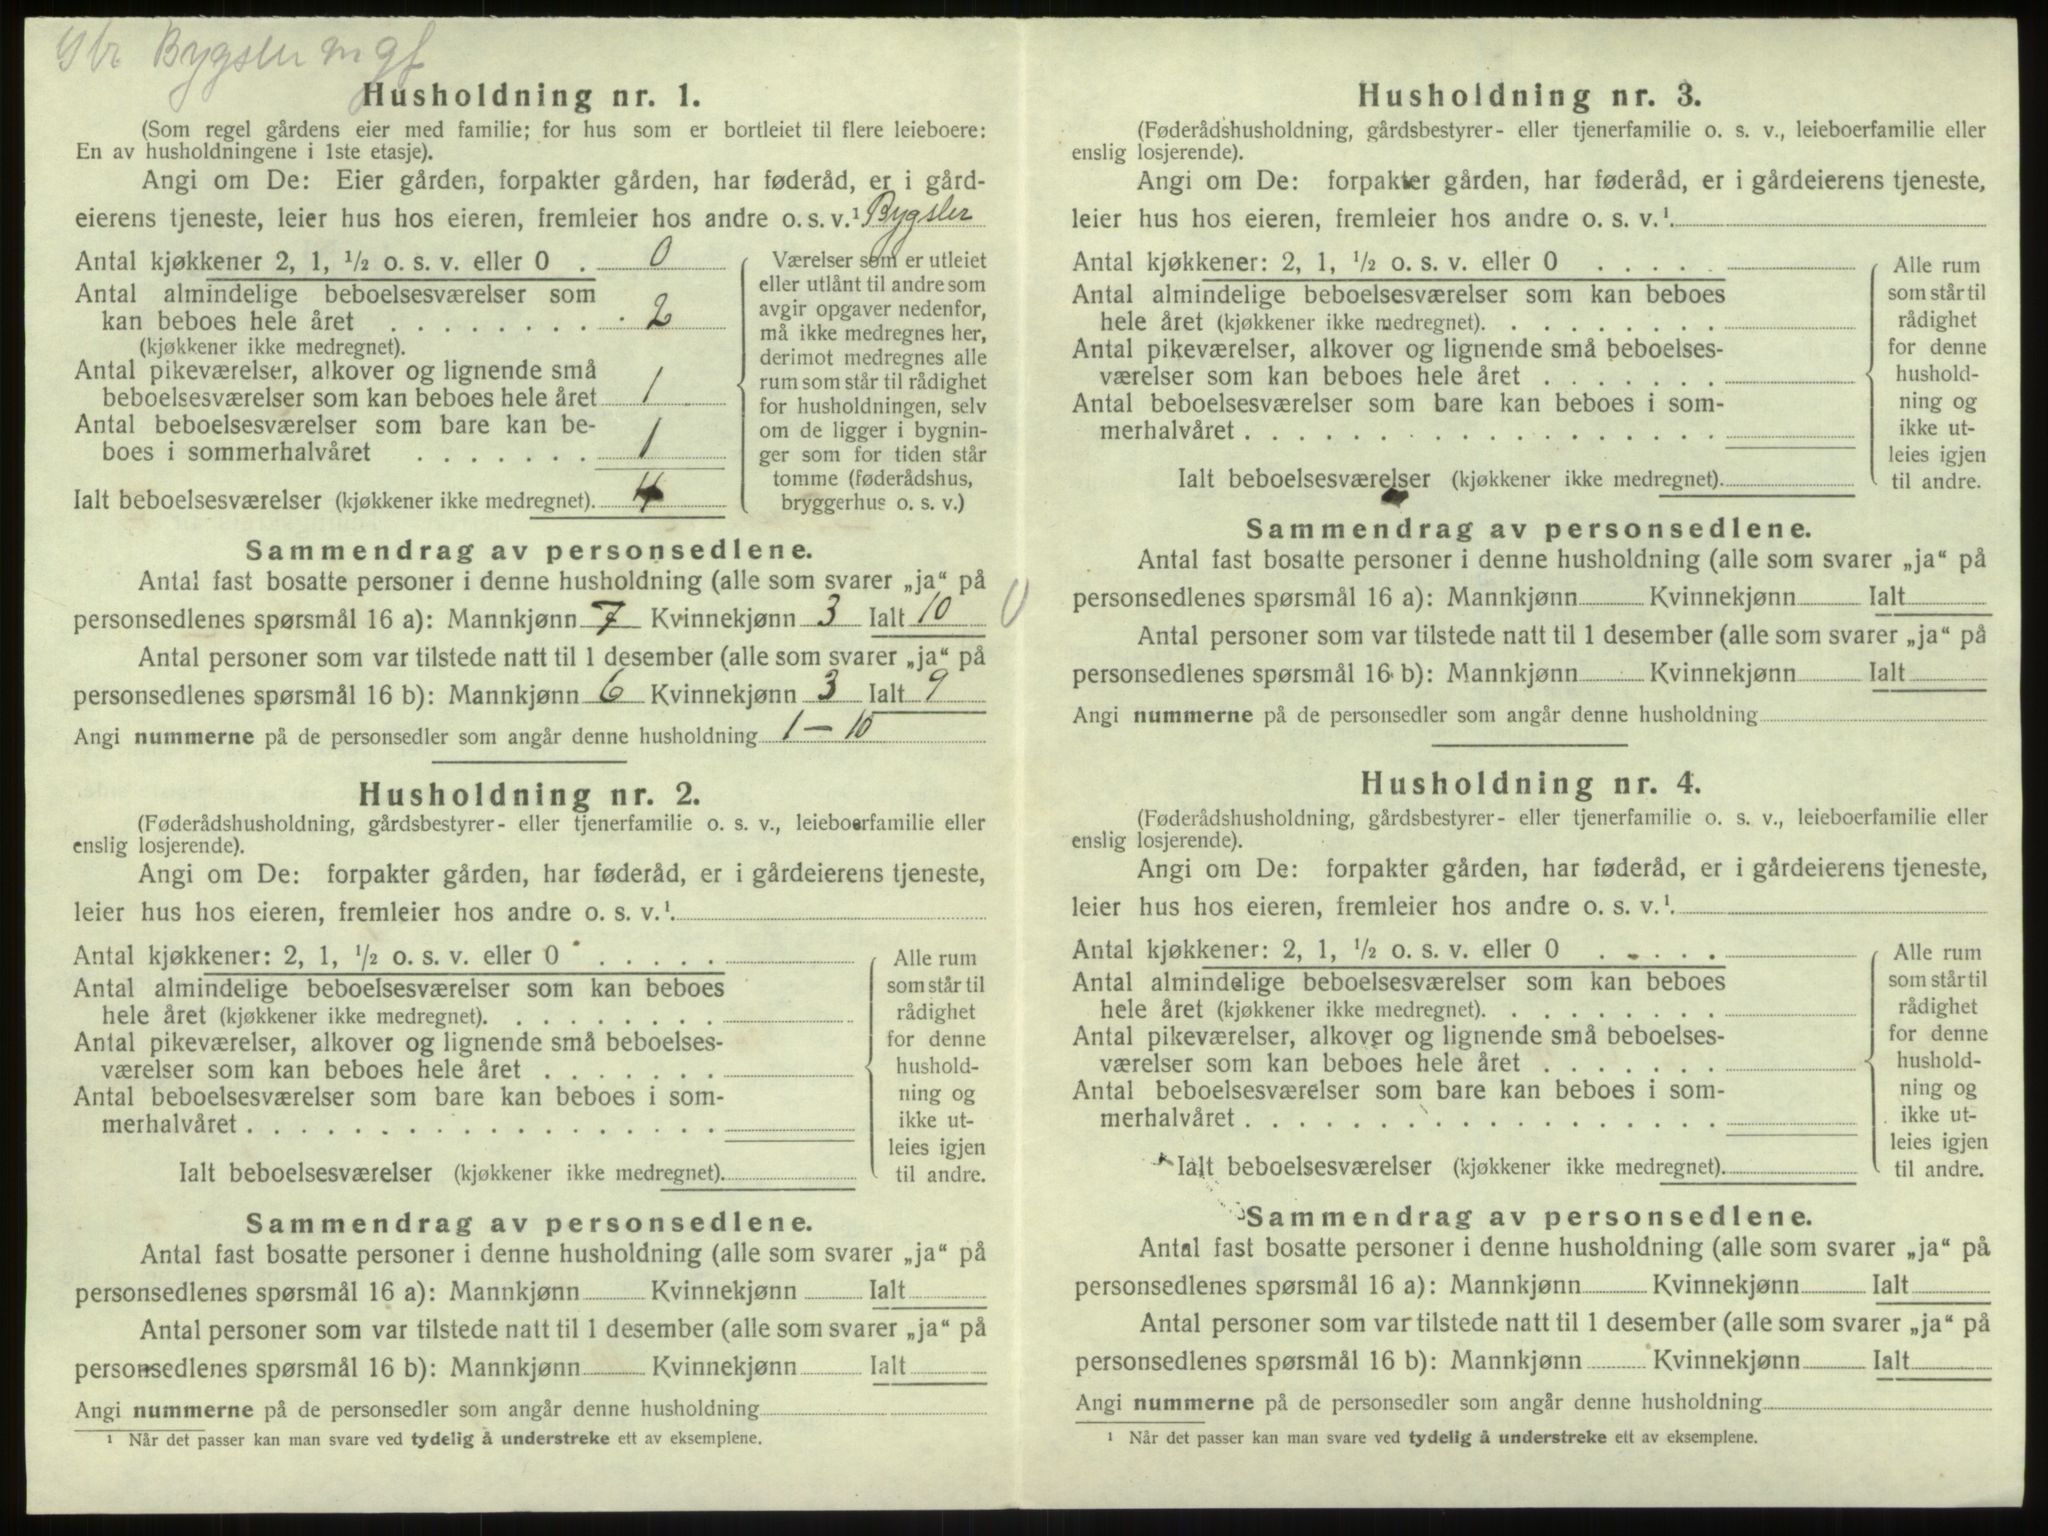 Gbr Bygsler m gf
Husholdning nr. 1.
(Som regel gårdens eier med familie; for hus som er bortleiet til flere leieboere:
En av husholdningene i 1ste etasje).
Angi om De: Eier gården, forpakter gården, har føderåd, er i gård-
eierens tjeneste, leier hus hos eieren, fremleier hos andre o. s. v.¹ Bygsler
Antal kjøkkener 2, 1, ½ o. s. v. eller 0 . 0
Antal almindelige beboelsesværelser som
kan beboes hele året . . . . . . . . . 2
(kjøkkener ikke medregnet).
Antal pikeværelser, alkover og lignende små
beboelsesværelser som kan beboes hele året 1
Antal beboelsesværelser som bare kan be-
boes i sommerhalvåret . . . . . . . 1
Ialt beboelsesværelser (kjøkkener ikke medregnet). 4
Værelser som er utleiet
eller utlånt til andre som
avgir opgaver nedenfor,
må ikke medregnes her,
derimot medregnes alle
rum som står til rådighet
for husholdningen, selv
om de ligger i bygnin-
ger som for tiden står
tomme (føderådshus,
bryggerhus o. s. v.)
Sammendrag av personsedlene.
Antal fast bosatte personer i denne husholdning (alle som svarer „ja“ på
personsedlenes spørsmål 16 a): Mannkjønn 7 Kvinnekjønn 3 Ialt 10
Antal personer som var tilstede natt til 1 desember (alle som svarer „ja“ på
personsedlenes spørsmål 16 b): Mannkjønn 6 Kvinnekjønn 3 Ialt 9
Angi nummerne på de personsedler som angår denne husholdning 1 — 10
Husholdning nr. 2.
(Føderådshusholdning, gårdsbestyrer- eller tjenerfamilie o. s. v., leieboerfamilie eller
enslig losjerende).
Angi om De: forpakter gården, har føderåd, er i gårdeierens tjeneste,
leier hus hos eieren, fremleier hos andre o. s. v.¹.
Antal kjøkkener: 2, 1, ½ o. s. v. eller 0 . . . . .
Antal almindelige beboelsesværelser som kan beboes
hele året (kjøkkener ikke medregnet). . . . . . . . .
Antal pikeværelser, alkover og lignende små beboelses-
værelser som kan beboes hele året . . . . . . .
Antal beboelsesværelser som bare kan beboes i som-
merhalvåret . . . . . . . . . . . . . . . . . .
Ialt beboelsesværelser (kjøkkener ikke medregnet).
Alle rum
som står til
rådighet
for denne
hushold-
ning og
ikke ut-
leies igjen
til andre.
Sammendrag av personsedlene.
Antal fast bosatte personer i denne husholdning (alle som svarer „ja“ på
personsedlenes spørsmål 16 a): Mannkjønn Kvinnekjønn Ialt
Antal personer som var tilstede natt til 1 desember (alle som svarer „ja“ på
personsedlenes spørsmål 16 b): Mannkjønn Kvinnekjønn Ialt
Angi nummerne på de personsedler som angår denne husholdning
¹ Når det passer kan man svare ved tydelig å understreke ett av eksemplene.
Husholdning nr. 3.
(Føderådshusholdning, gårdsbestyrer- eller tjenerfamilie o. s. v., leieboerfamilie eller
enslig losjerende).
Angi om De: forpakter gården, har føderåd, er i gårdeierens tjeneste,
leier hus hos eieren, fremleier hos andre o. s. v.¹.
Antal kjøkkener: 2, 1, ½ o. s. v. eller 0 . . . . .
Antal almindelige beboelsesværelser som kan beboes
hele året (kjøkkener ikke medregnet). . . . . . . . .
Antal pikeværelser, alkover og lignende små beboelses-
værelser som kan beboes hele året . . . . . . .
Antal beboelsesværelser som bare kan beboes i som-
merhalvåret . . . . . . . . . . . . . . . . . .
Ialt beboelsesværelser (kjøkkener ikke medregnet).
Alle rum
som står til
rådighet
for denne
hushold-
ning og
ikke ut-
leies igjen
til andre.
Sammendrag av personsedlene.
Antal fast bosatte personer i denne husholdning (alle som svarer „ja“ på
personsedlenes spørsmål 16 a): Mannkjønn Kvinnekjønn Ialt
Antal personer som var tilstede natt til 1 desember (alle som svarer „ja“ på
personsedlenes spørsmål 16 b): Mannkjønn Kvinnekjønn Ialt
Angi nummerne på de personsedler som angår denne husholdning
Husholdning nr. 4.
(Føderådshusholdning, gårdsbestyrer- eller tjenerfamilie o. s. v., leieboerfamilie eller
enslig losjerende).
Angi om De: forpakter gården, har føderåd, er i gårdeierens tjeneste,
leier hus hos eieren, fremleier hos andre o. s. v.¹.
Antal kjøkkener: 2, 1, ½ o. s. v. eller 0 . . . . .
Antal almindelige beboelsesværelser som kan beboes
hele året (kjøkkener ikke medregnet). . . . . . . . .
Antal pikeværelser, alkover og lignende små beboelses-
værelser som kan beboes hele året . . . . . . .
Antal beboelsesværelser som bare kan beboes i som-
merhalvåret . . . . . . . . . . . . . . . . . .
Ialt beboelsesværelser (kjøkkener ikke medregnet).
Alle rum
som står til
rådighet
for denne
hushold-
ning og
ikke ut-
leies igjen
til andre.
Sammendrag av personsedlene.
Antal fast bosatte personer i denne husholdning (alle som svarer „ja“ på
personsedlenes spørsmål 16 a): Mannkjønn Kvinnekjønn Ialt
Antal personer som var tilstede natt til 1 desember (alle som svarer „ja“ på
personsedlenes spørsmål 16 b): Mannkjønn Kvinnekjønn Ialt
Angi nummerne på de personsedler som angår denne husholdning
¹ Når det passer kan man svare ved tydelig å understreke ett av eksemplene.